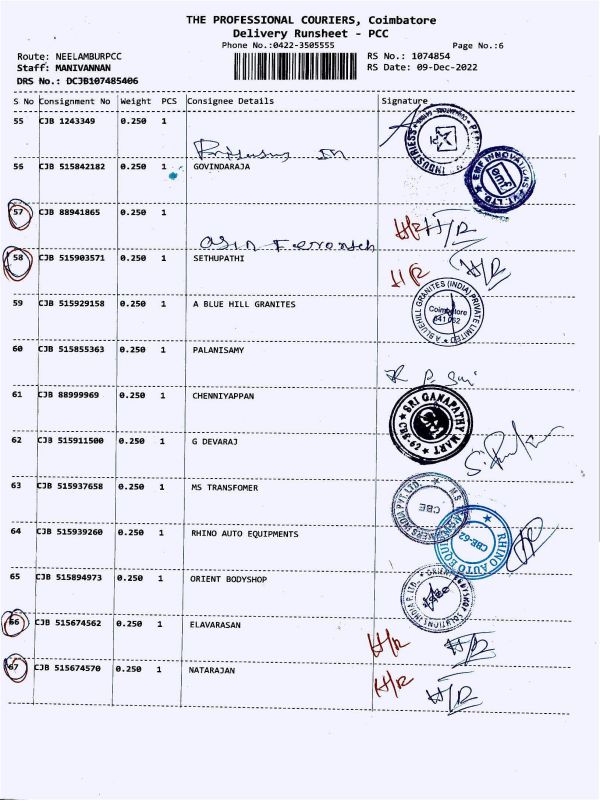 THE PROFESSIONAL COURIERS, Coimbatore
Delivery Runsheet - PCC
Phone No.:0422-3505555
Page No.:6
Route: NEELAMBURPCC
Staff: MANIVANNAN
DRS No.: DCJB107485406
RS No.: 1074854
RS Date: 09-Dec-2022
S No Consignment No Weight PCS Consignee Details Signature
55 CJB 1243349 0.250 1
INDUSTRIES
56 CJB 515842182 0.250 1 GOVINDARAJA
EMF INNOVATIONS PVT. LTD.
emf
57 CJB 88941865 0.250 1
H/R H/R
58 CJB 515903571 0.250 1 SETHUPATHI
H/R H/R
59 CJB 515929158 0.250 1 A BLUE HILL GRANITES
A BLUEHILL GRANITES (INDIA) PRIVATE LIMITED
Coimbatore
641 062
60 CJB 515855363 0.250 1 PALANISAMY
61 CJB 88999969 0.250 1 CHENNIYAPPAN
SRI GANAPATHY MART
CBE-62
62 CJB 515911500 0.250 1 G DEVARAJ
63 CJB 515937658 0.250 1 MS TRANSFOMER
CBE
64 CJB 515939260 0.250 1 RHINO AUTO EQUIPMENTS
RHINO AUTO
CBE-62
65 CJB 515894973 0.250 1 ORIENT BODYSHOP
66 CJB 515674562 0.250 1 ELAVARASAN
H/R H/R
67 CJB 515674570 0.250 1 NATARAJAN
H/R H/R